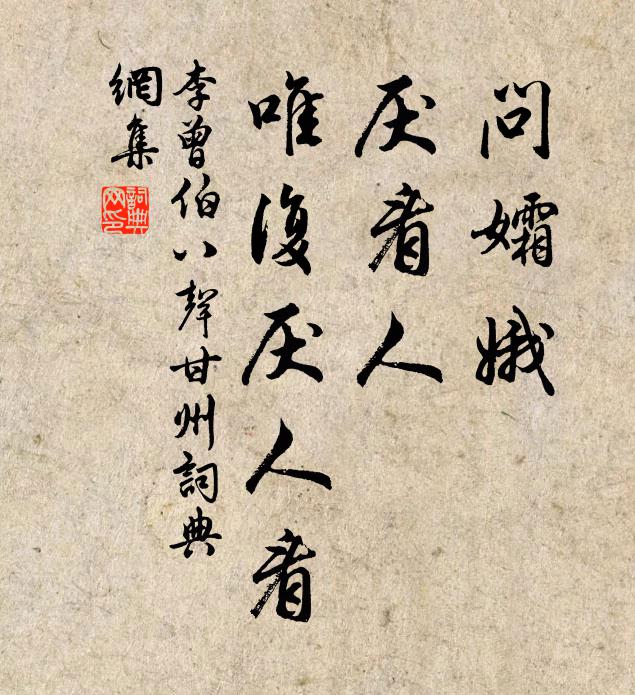 問孀娥
厌看人
唯復厌人看
李曾伯八聲甘州詞典
網集
詞典
网印